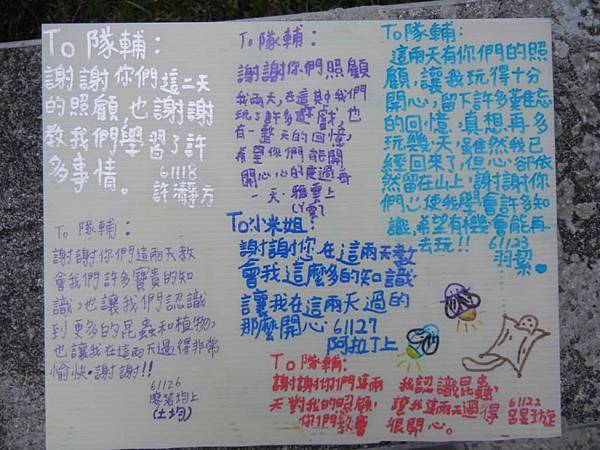 To 隊輔：
謝謝你們這二天
的照顧，也謝謝
教我們學習了許
多事情。
61118
許瀞方
To 隊輔：
謝謝你們照顧
我兩天，在這其中我們
玩了許多遊戲，也
有一整天的回憶，
希望你們能開
開心心的度過每
一天。雅雲上
To 隊輔：
這兩天有你們的照
顧，讓我玩得十分
開心，留下許多難忘
的回憶，真想再多
玩幾天，雖然我已
經回來了，但心卻依
然留在山上，謝謝你
們用心使我學會許多知
識，希望有機會能再
去玩!! 61123
羽潔
To 隊輔：
謝謝你們這兩天教
會我們許多寶貴的知
識，也讓我們認識
到更多的昆蟲和植物，
也讓我在這兩天過得非常
愉快。謝謝!!
61126
廖若均上
(土均)
To小米姐：
謝謝你在這兩天教
會我這麼多的知識
讓我在這兩天過的
那麼開心 61127
阿拉丁上
To 隊輔：
謝謝你們這兩
天對我的照顧，
你們教會
我認識昆蟲，
讓我這兩天過得
很開心。
61122
呂昱旋